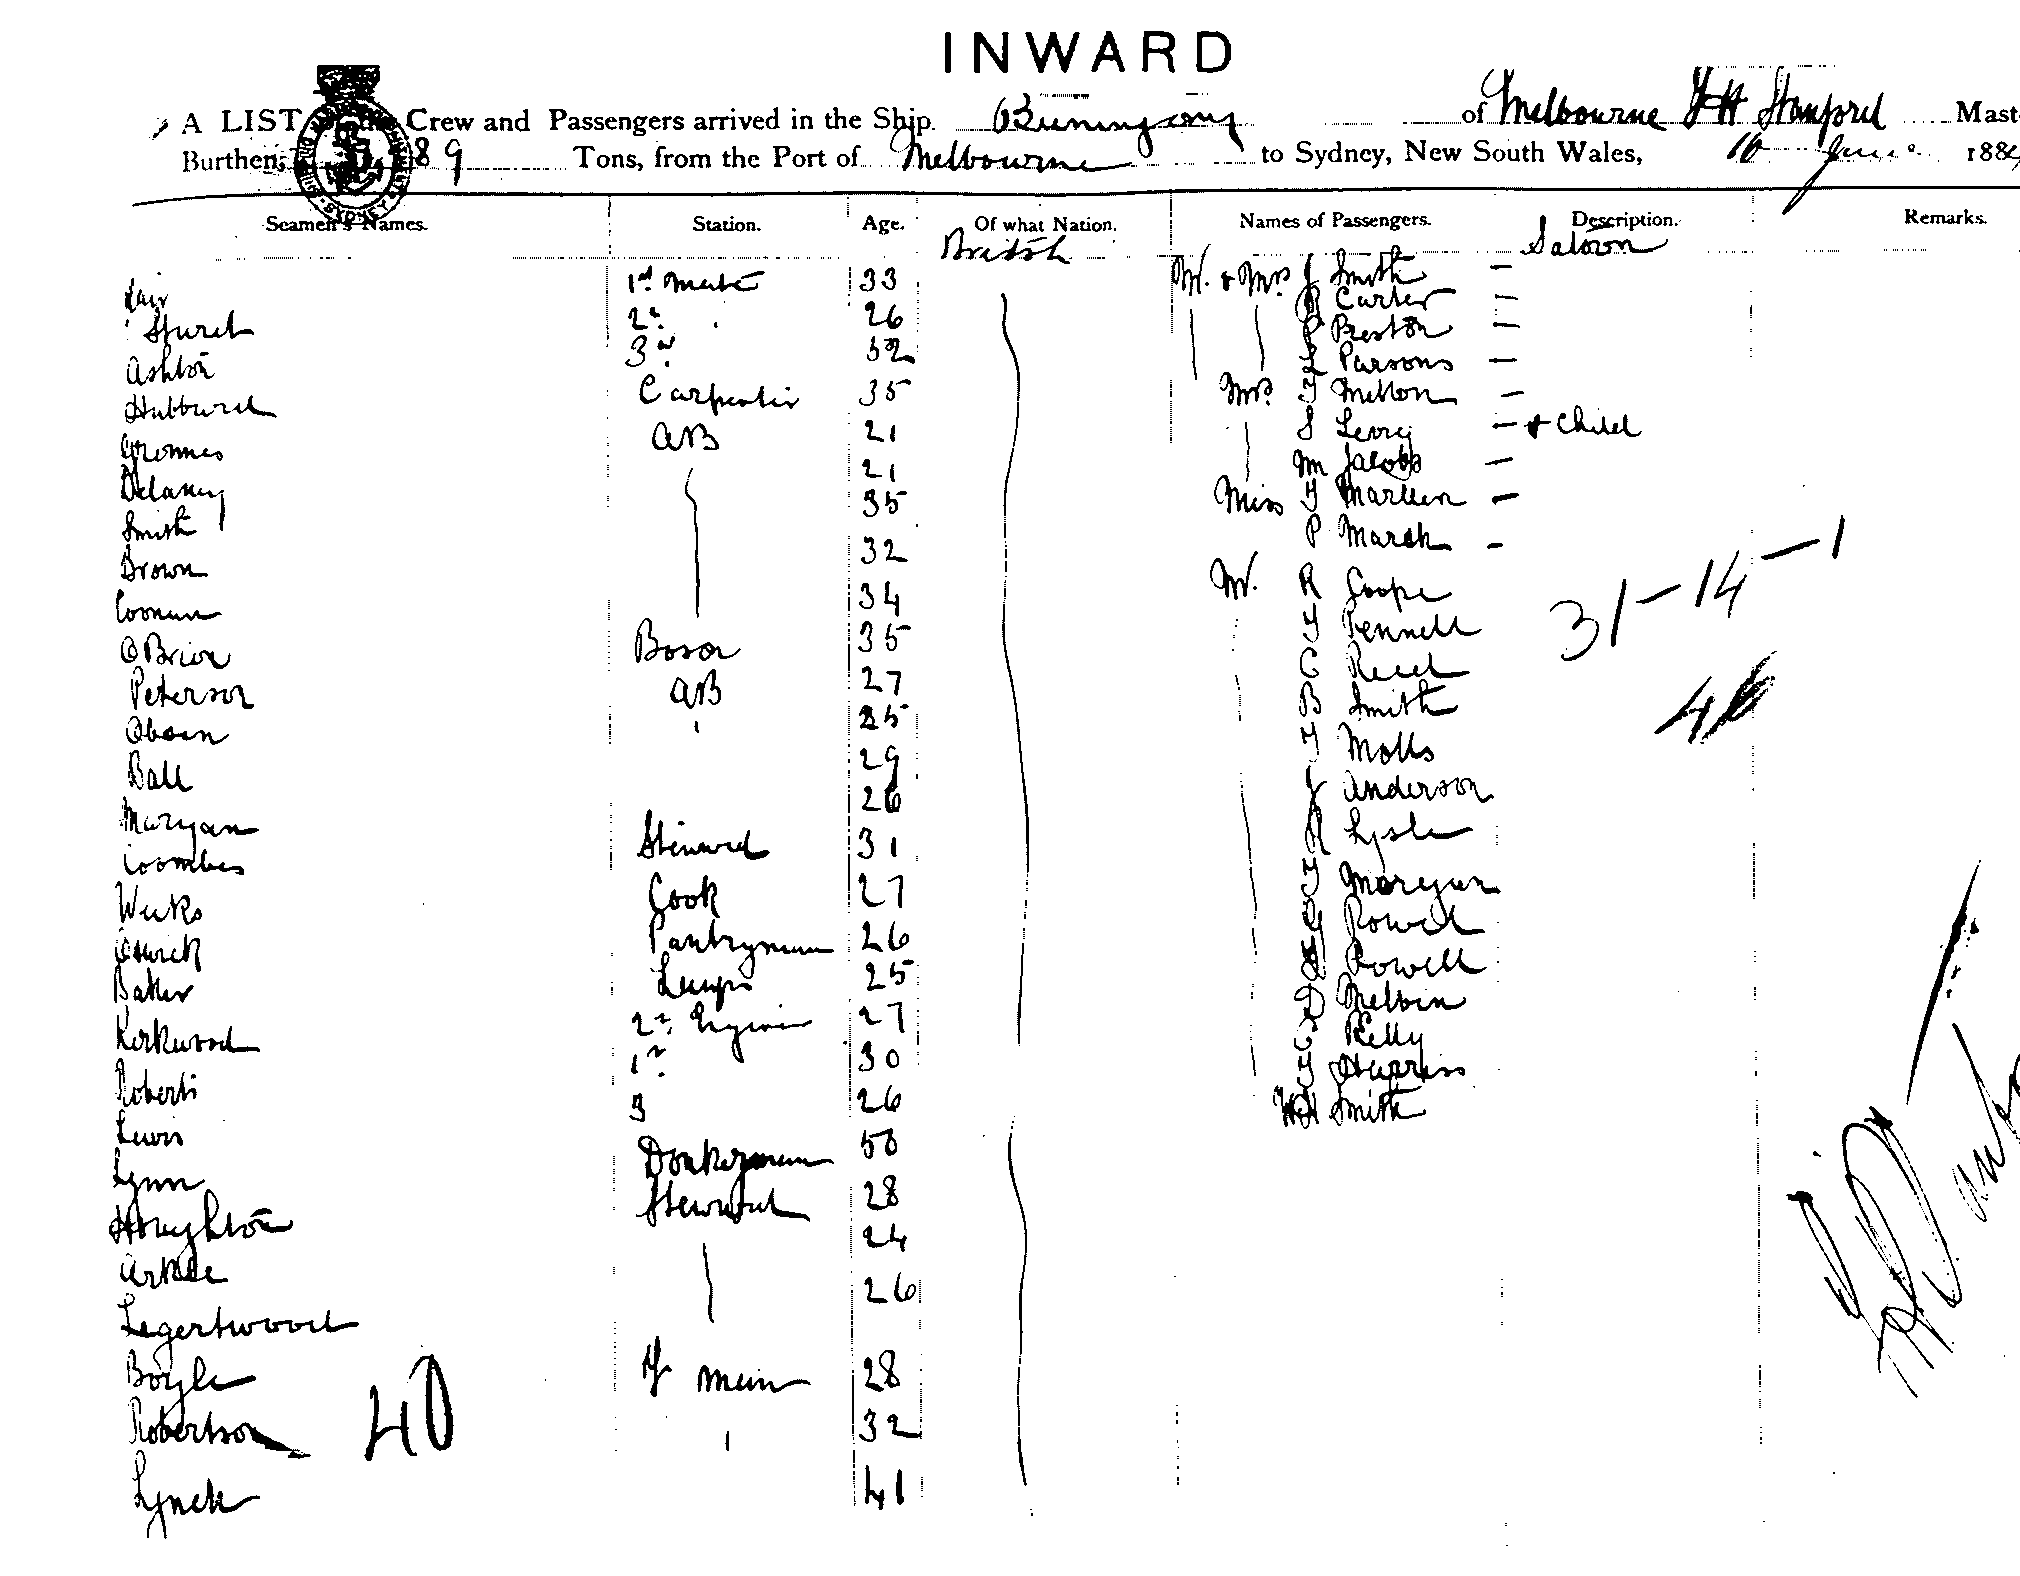 INWARD
A LIST of the Crew and Passengers arrived in the Ship Buninyong of Melbourne F H Stanford Mast
Burthen, 89 Tons, from the Port of Melbourne to Sydney, New South Wales, 16 June 188
Seamen's Names. Station. Age. Of what Nation. Names of Passengers. Description. Remarks.
British Saloon
1st Mate 33 Mr & Mrs J Smith —
2nd 26 Carter —
Ashton 3rd 32 P Preston —
Hubbard Carpenter 35 L Parsons —
AB 21 Mrs T Mitton —
Delaney 21 S Levy — & Child
Smith 35 Wm Jacobs —
Brown 32 Miss T —
Coonan 34 P Marsh —
O'Brien Boson 35 Mr R Cooper
Peterson AB 27 T Pennell
25 C Reed
Ball 29 B Smith
Morgan 26 T Motts
Coombes Steward 31 J Anderson
Weeks Cook 27 R Lysle
Pantryman 26 T Morgan
Baker Lamps 25 G Rowell
Kirkwood 2nd Engineer 27 Powell
Roberts 1st 30 D Melvin
Lewis 3 26 C Kelly
Lynn Donkeyman 50 T Harriss
Houghton Steward 28 W H Smith
24
Legertwood 26
Boyle F man 28
Robertson 32
Lynch 41
40
31 — 14 — 1
46